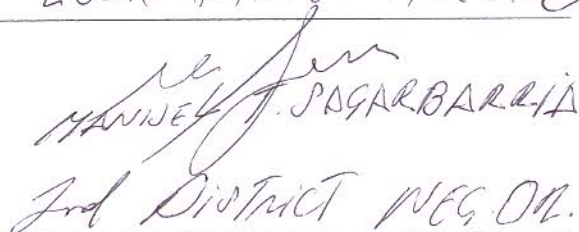 MANUEL T. SAGARBARRIA
2nd DISTRICT NEG. OR.